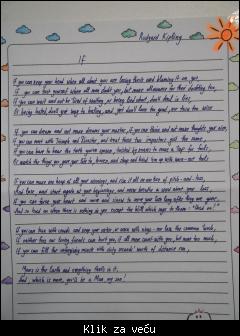 Rudyard Kipling
If
If you can keep your head when all about you are losing theirs and blaming it on you,
If you can trust yourself when all men doubt you, but make allowance for their doubting too,
If you can wait and not be tired of waiting, or being lied about, don't deal in lies,
Or being hated, don't give way to hating, and yet don't look too good, nor talk too wise
If you can dream and not make dreams your master, if you can think and not make thoughts your aim,
If you can meet with Triumph and Disaster, and treat those two impostors just the same,
If you can bear to hear the truth you've spoken, twisted by knaves to make a trap for fools,
Or watch the things you gave your life to, broken, and stoop and build 'em up with worn-out tools
If you can make one heap of all your winnings, and risk it all on one turn of pitch-and-toss,
And lose and start again at your beginnings, and never breathe a word about your loss,
If you can force your heart and nerve and sinew to serve your turn long after they are gone,
And so hold on when there is nothing in you except the Will which says to them: "Hold on!"
If you can talk with crowds and keep your virtue, or walk with kings - nor lose the common touch,
If neither foes nor loving friends can hurt you, if all men count with you, but none too much,
If you can fill the unforgiving minute with sixty seconds' worth of distance run,
Yours is the Earth and everything that's in it,
And, which is more, you'll be a Man my son!
Klik za veću